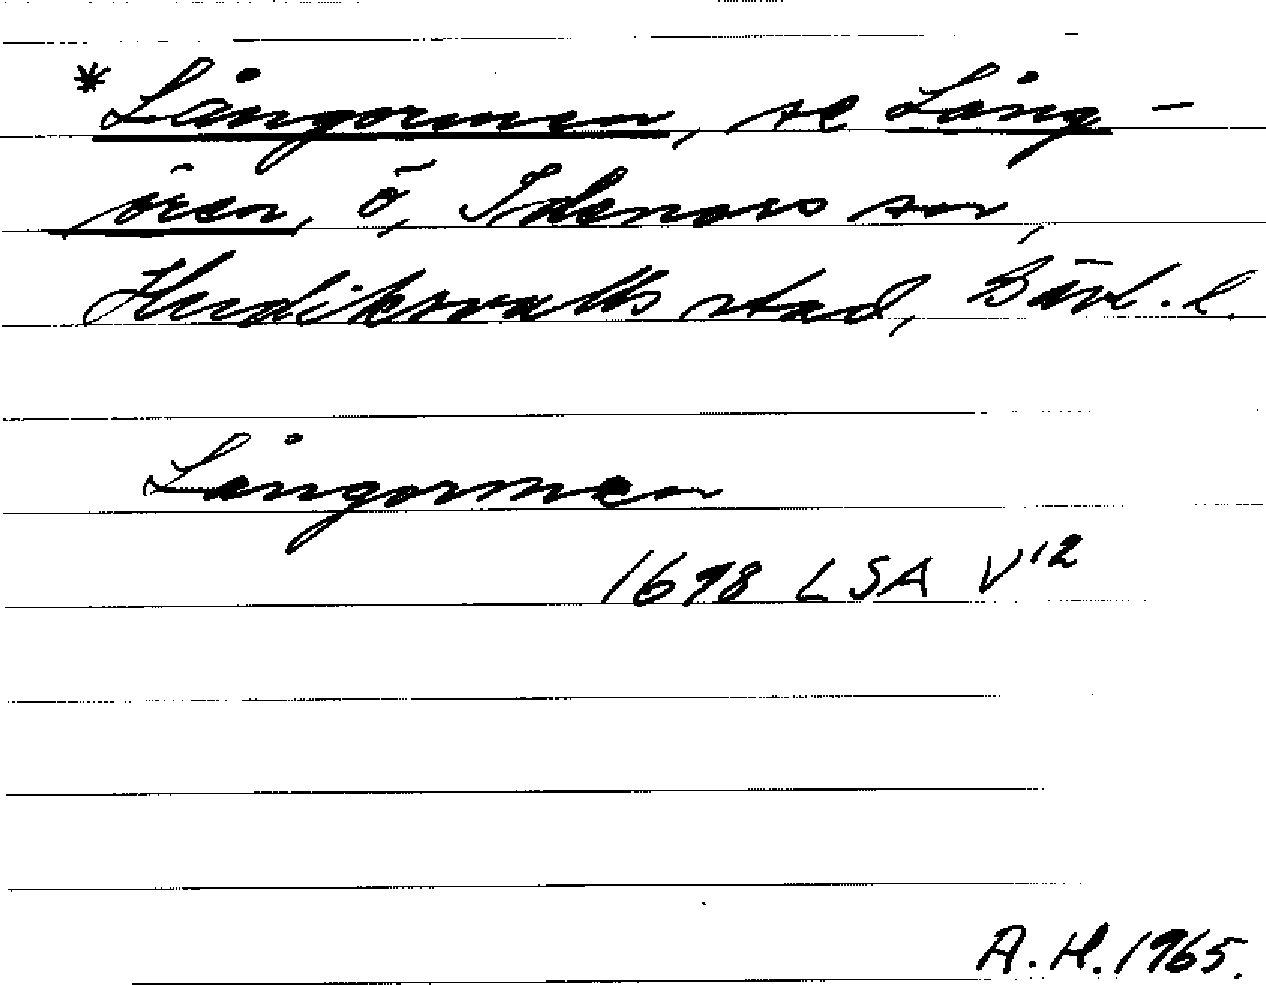 *Långormen, se Lång-
ören, ö, Idenors sn,
Hudiksvalls stad, Gävl. l.
Långormen
1698 LSA V¹²
A. H. 1965.